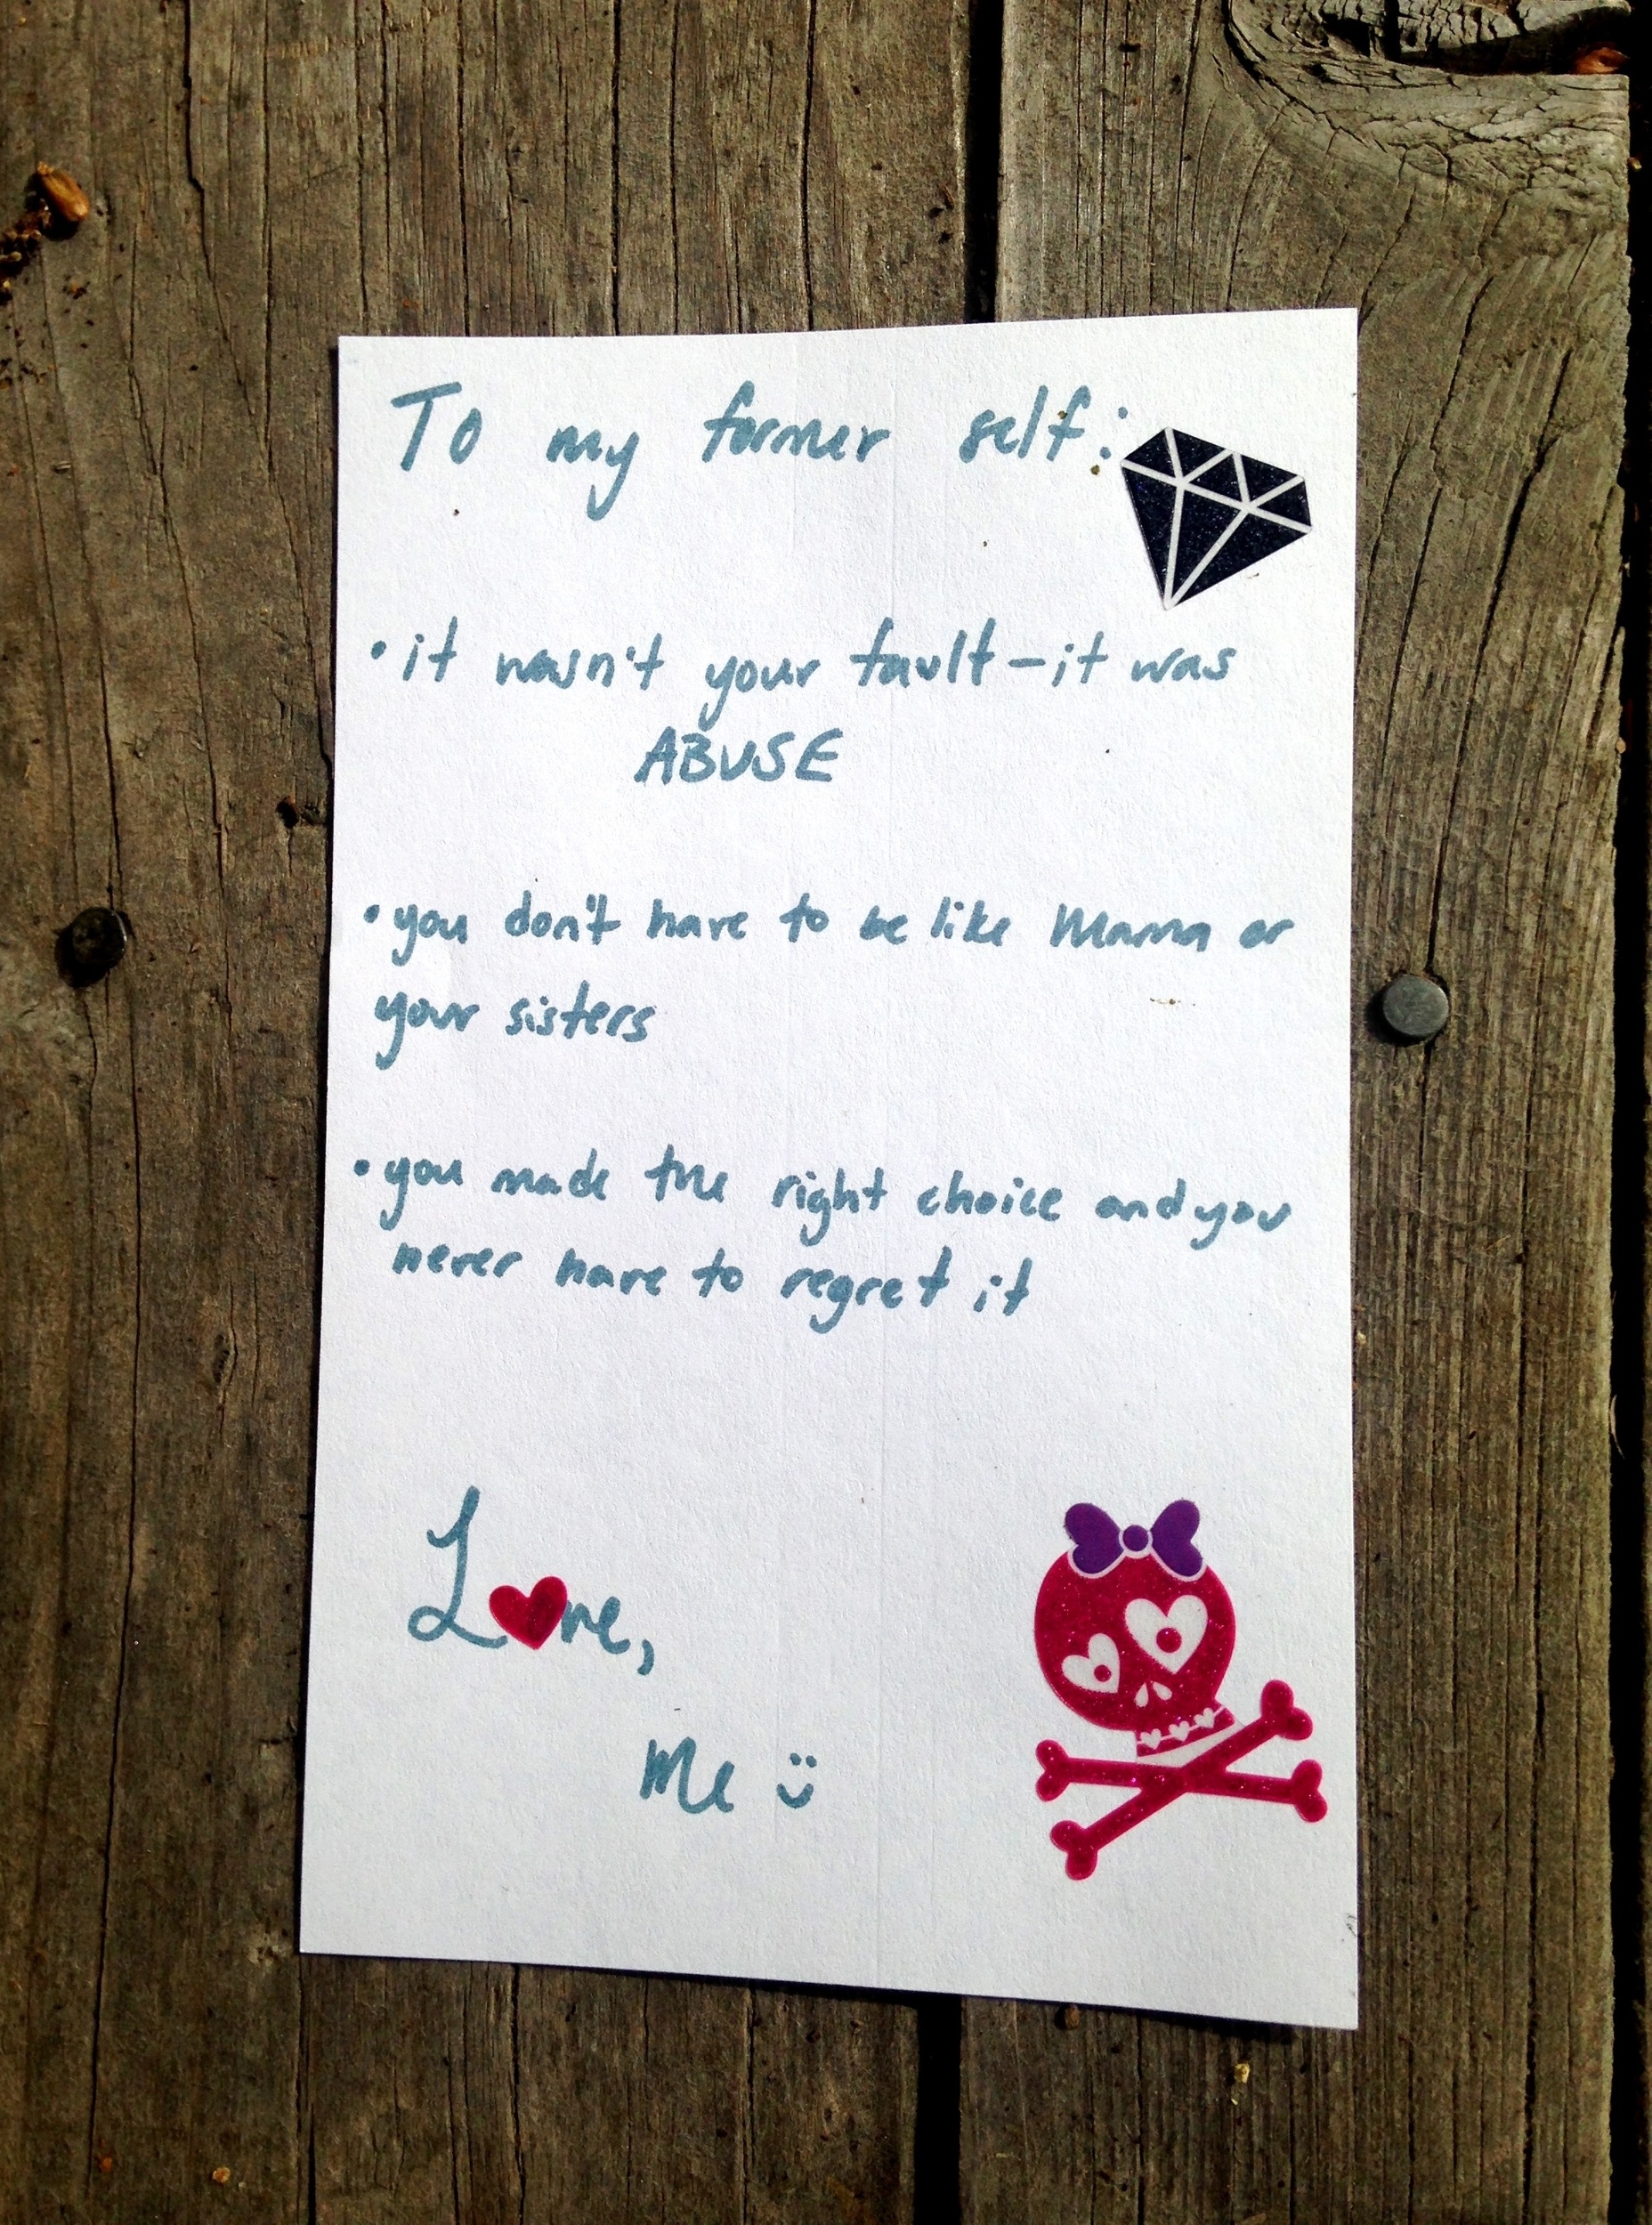 To my former self:
• it wasn't your fault – it was
ABUSE
• you don't have to be like Mama or
your sisters
• you made the right choice and you
never have to regret it
L❤ve,
Me :)